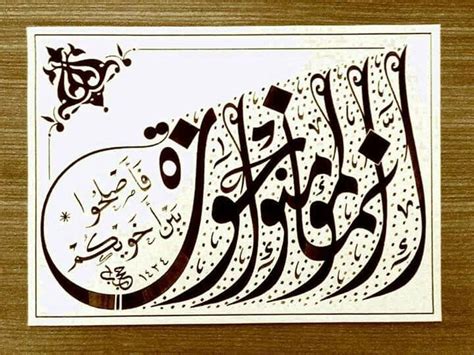 إنما المؤمنون إخوة
فأصلحوا
بين أخويكم *
١٤٣٤